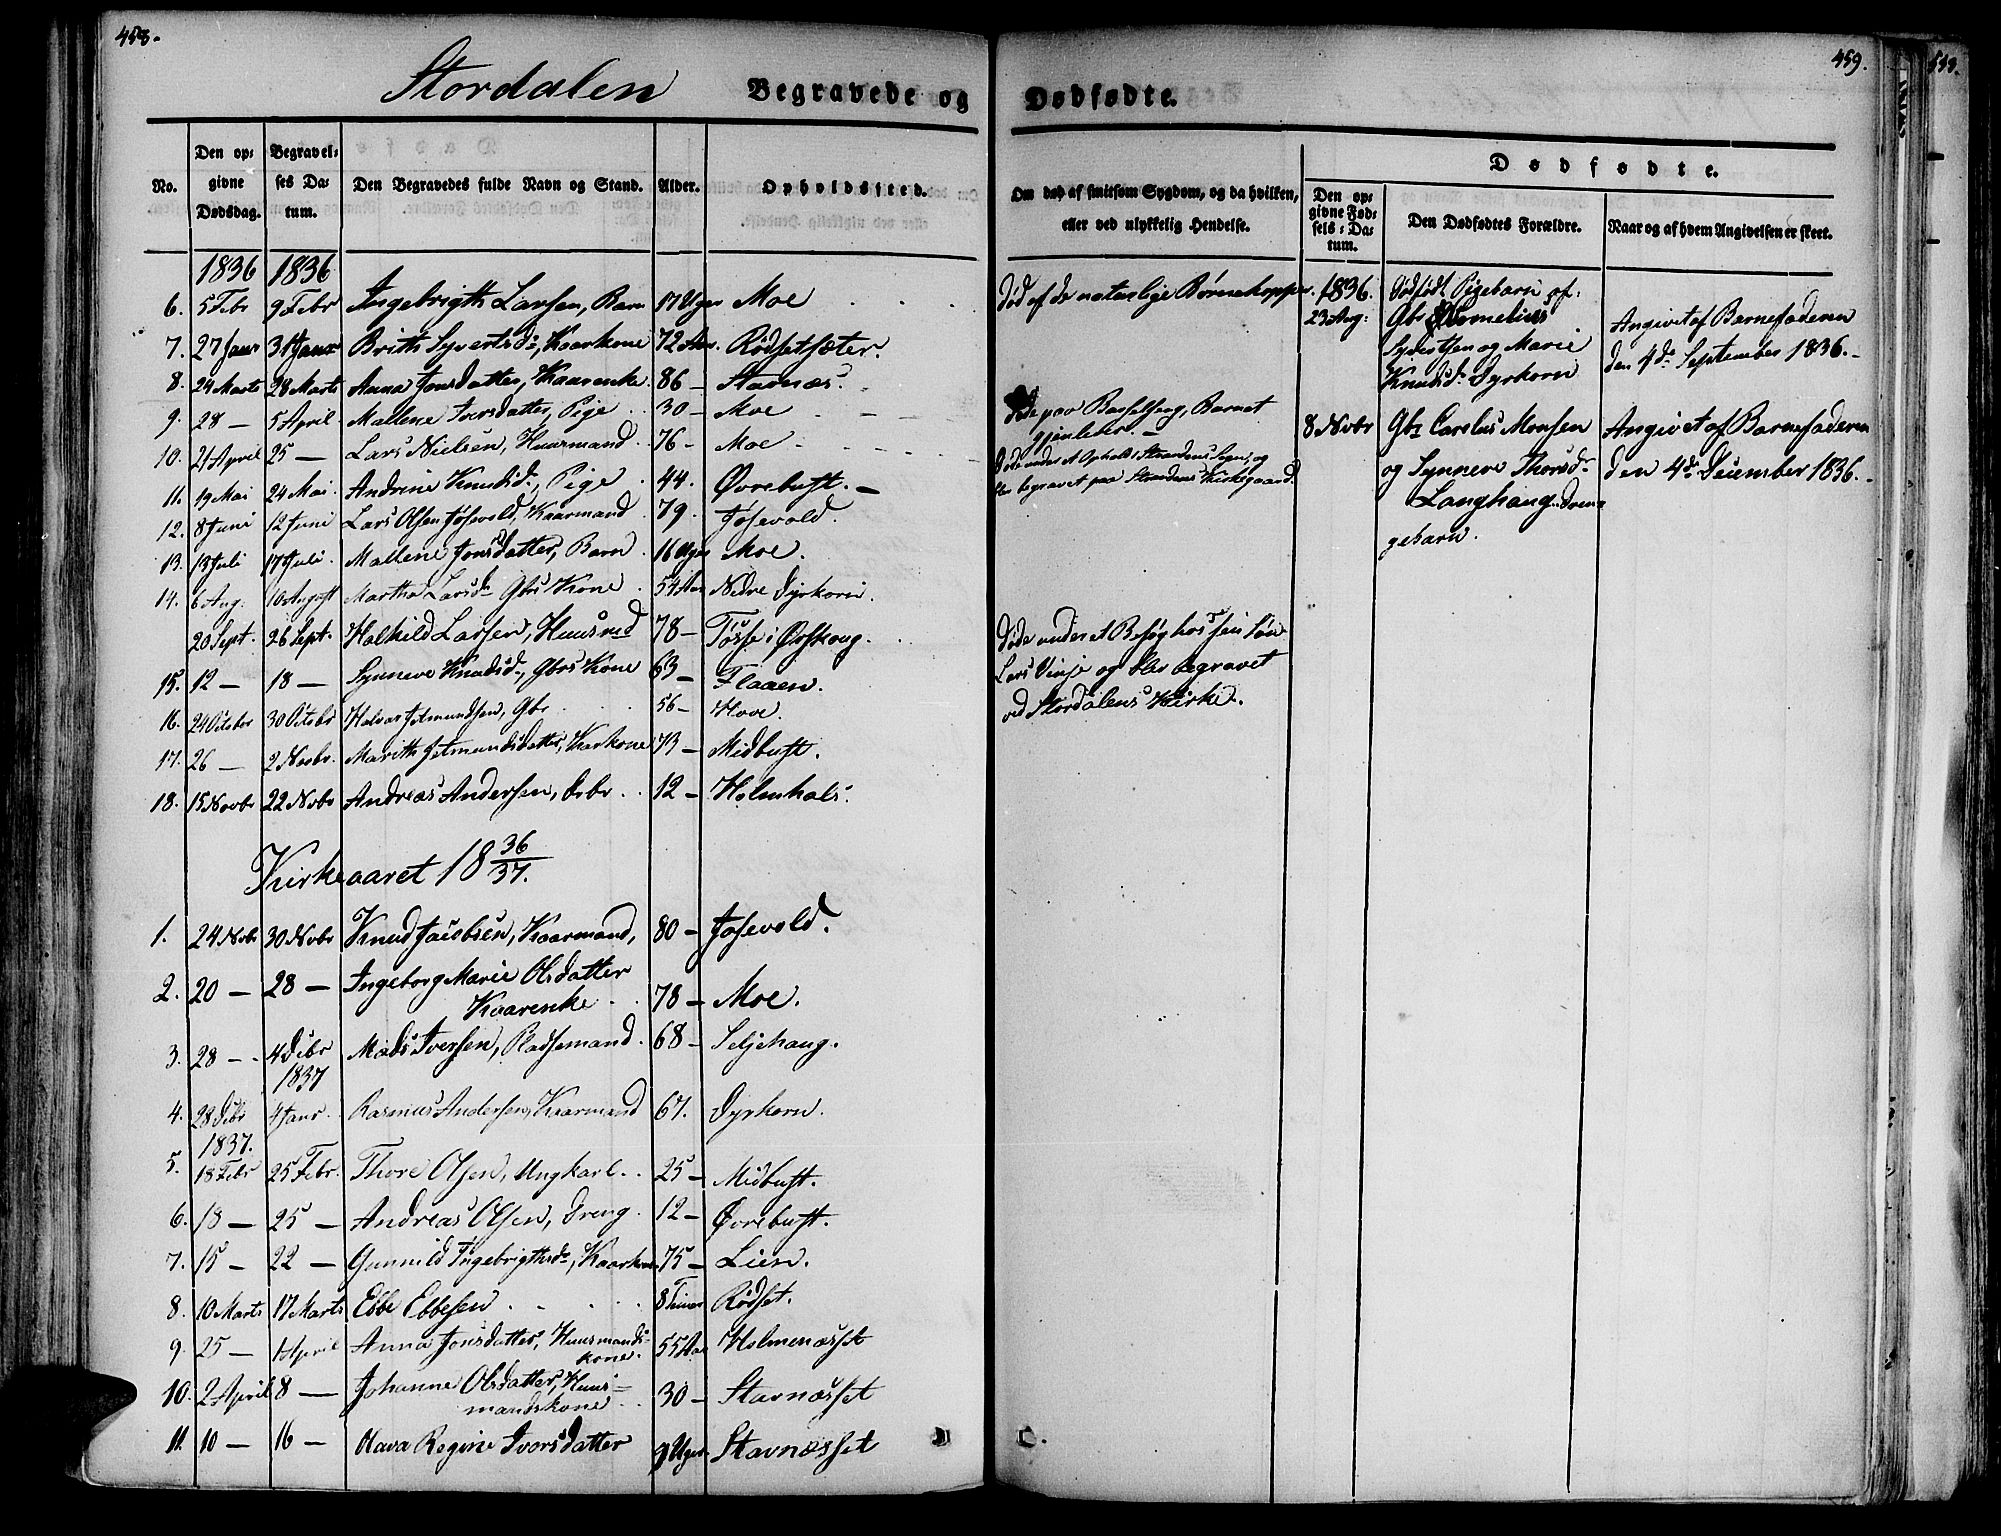 458.
Stordalen Begravede og
No. Den op- givne Dødsdag. Begravel- ses Da- tum. Den Begravedes fulde Navn og Stand. Alder. Opholdssted.
1836 1836
6. 5 Febr 9 Febr Ingebrigth Larsen, Barn 17 Uger Moe
7. 27 Janr 31 Janr Brith Syvertsd:, Kaarkone 72 Aar. Rødsetsæter.
8. 24 Marts 28 Marts Anna Jonsdatter, Kaarenke. 86 – Stavnæs.
9. 28 – 5 April Mallene Iversdatter, Pige 30 – Moe
10. 21 April 25 – Lars Nielsen, Huusmand 76 – Moe
11. 19 Mai 24 Mai Andrine Knudsd:, Pige 44. Øvrebust. –
12. 8 Juni 12 Juni Lars Olsen Jøsevold, Kaarmand 79. Jøsevold.
13. 13 Juli 17 Juli Mallene Jonsdatter, Barn 16 Uger Moe.
14. 6 Aug. 10 August Martha Larsd: Gbrs Kone 54 Aar Nedre Dyrkorn.
20 Sept. 26 Sept. Halkild Larsen, Huusmd 78 – Tøsse i Ørskoug.
15. 12 – 18 – Synneve Knudsd:, Gbrs Kone 63 – Flaaen.
16. 24 Octobr 30 Octobr Halvor Jetmundsen, Gbr 56 – Hove.
17. 26 – 2 Novbr. Marith Jetmundsdatter, Karkone 73 – Midbust.
18. 15 Novbr 22 Nvbr Andreas Andersen, 12 – Holmhals.
Kirkeaaret 18 36/37.
1. 24 Nvbr 30 Nvbr Knud Jacobsen, Kaarmand, 80 – Jøsevold.
2. 20 – 28 – Ingeborg Marie Olsdatter
Kaarenke 78 – Moe.
3. 28 – 4 Dcbr Mads Iversen, Pladsemand. 68 – Seljehaug.
1837
4. 28 Dcbr 4 Janr. Rasmus Andersen, Kaarmand 67. Dyrkorn.
1837.
5. 18 Febr 25 Febr. Thore Olsen, Ungkarl. 25 – Midbust.
6. 18 – 25 – Andreas Olsen, Dreng. 12 – Øvrebust.
7. 15 – 22 – Gunnild Ingebrigthsd:, Kaarkone 75 – Lien.
8. 10 Marts 17 Marts Ebbe Ebbesen 8 Timer Rødset.
9. 25 – 1 April Anna Jonsdatter, Huusmands-
kone. 55 Aar Holmenæsset
10. 2 April 8 – Johanne Olsdatter, Huus-
mandskone 30 – Stavnæsset
11. 10 – 16 – Olava Regine Iversdatter 9 Uger. Stavnæsset
459.
Dødfødte.
Om død af smitsom Sygdom, og da hvilken, eller ved ulykkelig Hendelse.
Dødfødte.
Den op- givne Fød- sels-Da- tum. Den Dødfødtes Forældre. Naar og af hvem Angivelsen er skeet.
Død af de naturlige Børnekopper.
Døde paa Barselseng, Barnet
gjenlever. –
Døde under et Ophold i Strandens Sogn, og
blev begravet paa Strandens Kirkegaard.
Døde under et Besøg hos sin Søn
Lars Vinje og blev begravet
ved Stordalens Kirke.
1836.
23 Aug: Dødfødt Pigebarn af:
Gbr Cornelius
Syvertsen og Marie
Knudsd: Dyrkorn
Angivet af Barnefaderen
den 4de September 1836. –
8 Nvbr Gbr Carolus Monsen
og Synneve Thorsd:
Langhaug. Dren-
gebarn.
Angivet af Barnefaderen
den 4de December 1836. –